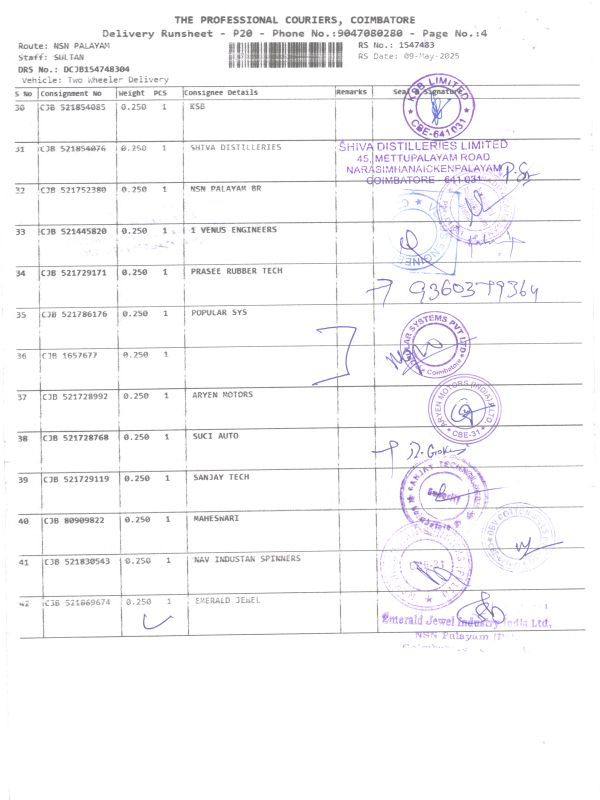 THE PROFESSIONAL COURIERS, COIMBATORE
Delivery Runsheet - P20 - Phone No.:9047080280 - Page No.:4
Route: NSN PALAYAM RS No.: 1547483
Staff: SULTAN RS Date: 09-May-2025
DRS No.: DCJB154748304
Vehicle: Two Wheeler Delivery
S No Consignment No Weight PCS Consignee Details Remarks Seal & Signature
30 CJB 521854085 0.250 1 KSB
KSB LIMITED
CBE-641031
31 CJB 521854076 0.250 1 SHIVA DISTILLERIES
SHIVA DISTILLERIES LIMITED
45, METTUPALAYAM ROAD
NARASIMHANAICKENPALAYAM
COIMBATORE - 641 031
32 CJB 521752380 0.250 1 NSN PALAYAM BR
33 CJB 521445820 0.250 1 1 VENUS ENGINEERS
34 CJB 521729171 0.250 1 PRASEE RUBBER TECH
9360379364
35 CJB 521786176 0.250 1 POPULAR SYS
SYSTEMS PVT LTD
Coimbatore
36 CJB 1657677 0.250 1
37 CJB 521728992 0.250 1 ARYEN MOTORS
ARYEN MOTORS (INDIA) P LTD
CBE-31
38 CJB 521728768 0.250 1 SUCI AUTO
39 CJB 521729119 0.250 1 SANJAY TECH
SANJAY
40 CJB 80909822 0.250 1 MAHESWARI
41 CJB 521830543 0.250 1 NAV INDUSTAN SPINNERS
42 CJB 521869674 0.250 1 EMERALD JEWEL
Emerald Jewel Industry India Ltd,
NSN Palayam